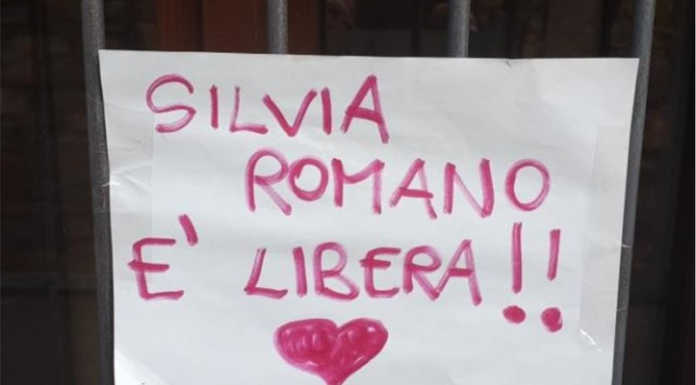 SILVIA
ROMANO
E' LIBERA!!